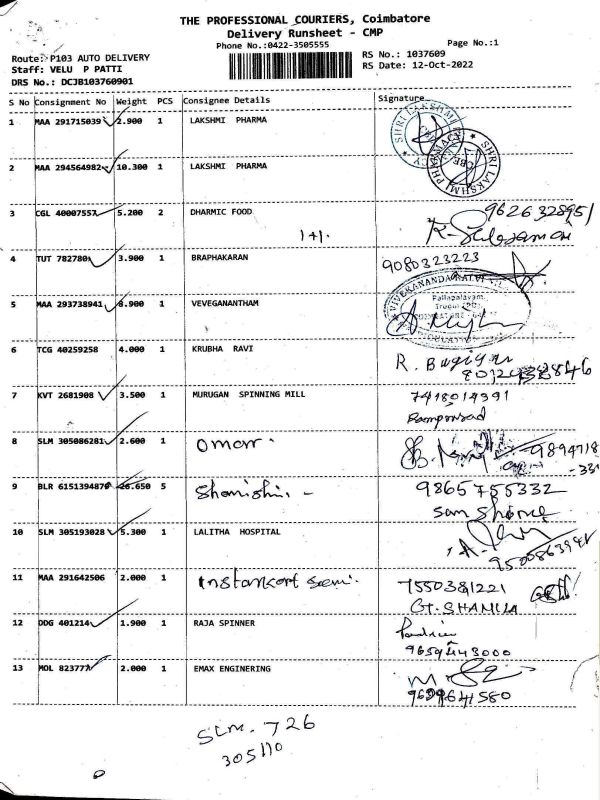 THE PROFESSIONAL COURIERS, Coimbatore
Delivery Runsheet - CMP
Phone No.:0422-3505555
Page No.:1
Route: P103 AUTO DELIVERY
Staff: VELU P PATTI
DRS No.: DCJB103760901
RS No.: 1037609
RS Date: 12-Oct-2022
S No Consignment No Weight PCS Consignee Details Signature
1 MAA 291715039 2.900 1 LAKSHMI PHARMA
2 MAA 294564982 10.300 1 LAKSHMI PHARMA
SHRI LAKSHMI PHARMACY CBE
3 CGL 40007557 5.200 2 DHARMIC FOOD 9626328951
1+1.
4 TUT 782780 3.900 1 BRAPHAKARAN 9080323223
5 MAA 293738941 8.900 1 VEVEGANANTHAM
Pallapalayam,
6 TCG 40259258 4.000 1 KRUBHA RAVI
7 KVT 2681908 3.500 1 MURUGAN SPINNING MILL 7418014391
8 SLM 305086281 2.600 1 Omar.
9 BLR 6151394876 26.650 5 9865755332
10 SLM 305193028 5.300 1 LALITHA HOSPITAL
9500863941
11 MAA 291642506 2.000 1 Instankart 7550381221
GT. SHAMILA
12 DDG 401214 1.900 1 RAJA SPINNER
9659443000
13 MOL 823777 2.000 1 EMAX ENGINERING
SLM. 726
305110